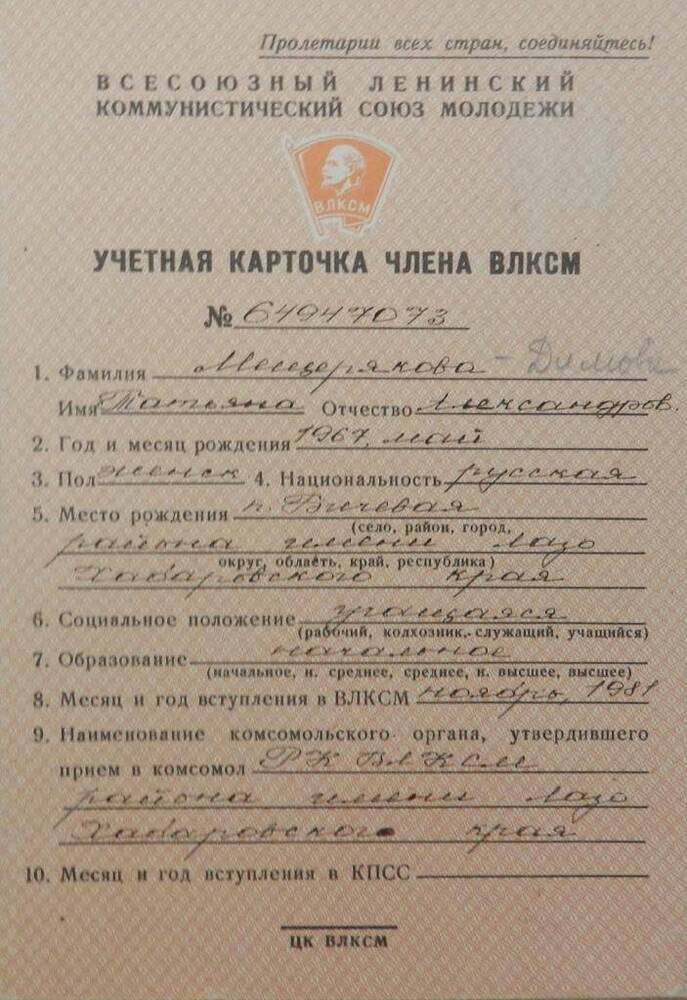 Пролетарии всех стран, соединяйтесь!
ВСЕСОЮЗНЫЙ ЛЕНИНСКИЙ
КОММУНИСТИЧЕСКИЙ СОЮЗ МОЛОДЕЖИ
ВЛКСМ
УЧЕТНАЯ КАРТОЧКА ЧЛЕНА ВЛКСМ
№ 64947073
1. Фамилия Мещерякова - Димова
Имя Татьяна Отчество Александров.
2. Год и месяц рождения 1967, май
3. Пол женск 4. Национальность русская
5. Место рождения п. Бичевая
(село, район, город,
района имени Лазо
округ, область, край, республика)
Хабаровского края
6. Социальное положение учащаяся
(рабочий, колхозник, служащий, учащийся)
7. Образование начальное
(начальное, н. среднее, среднее, н. высшее, высшее)
8. Месяц и год вступления в ВЛКСМ ноябрь, 1981
9. Наименование комсомольского органа, утвердившего
прием в комсомол РК ВЛКСМ
района имени Лазо
Хабаровского края
10. Месяц и год вступления в КПСС
ЦК ВЛКСМ